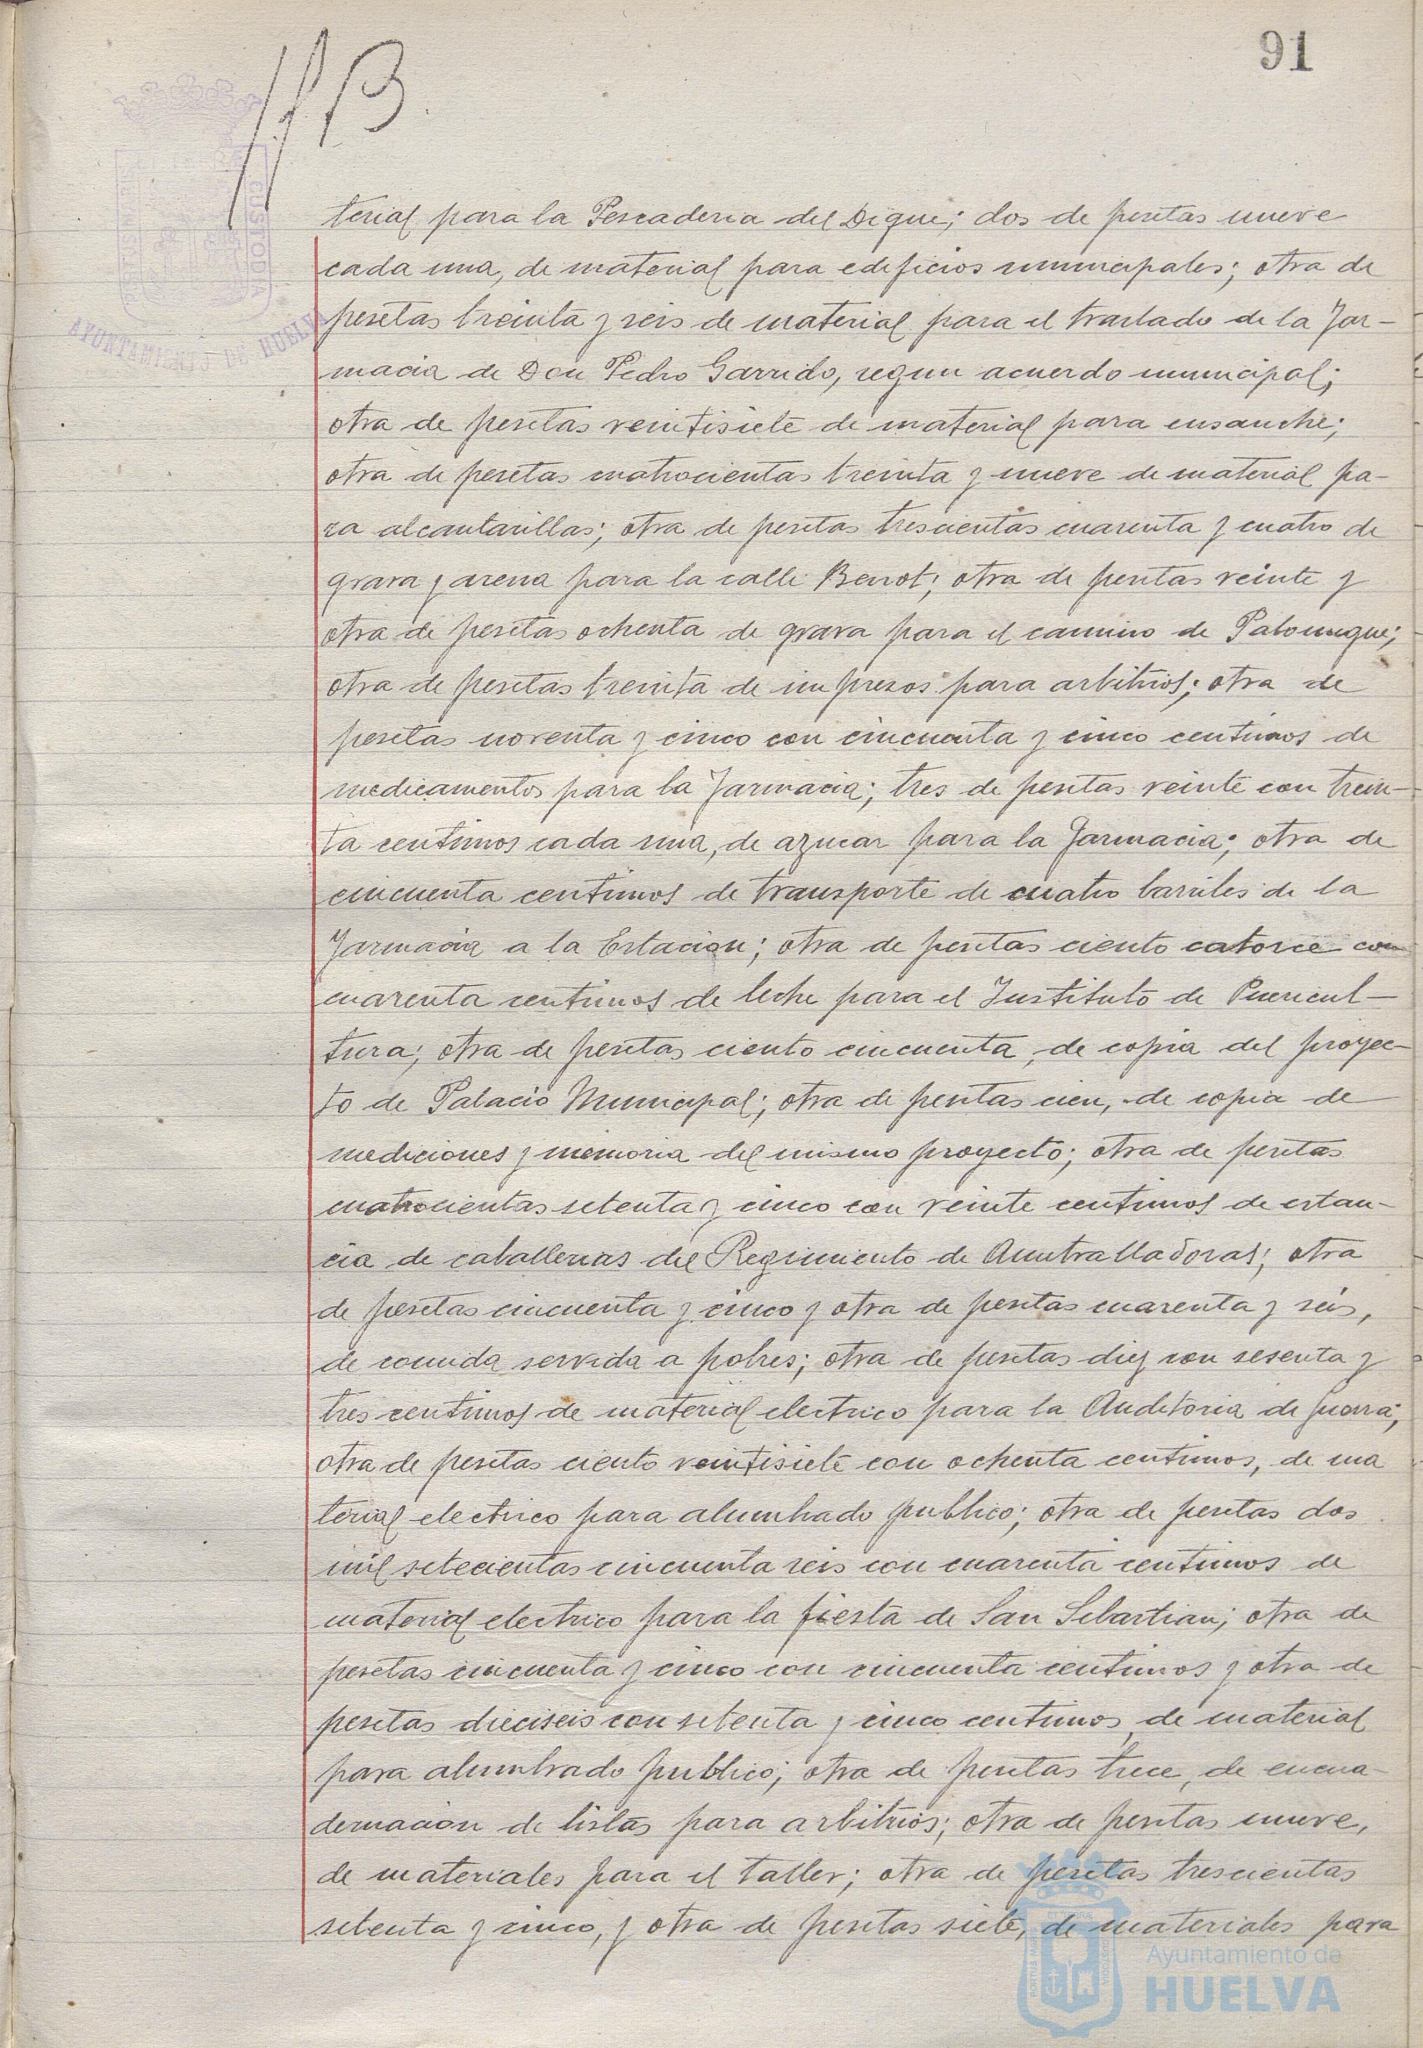 91
terial para la Pescaderia del Dique; dos de pesetas nueve
cada una, de material para edificios municipales; otra de
pesetas treinta y seis de material para el traslado de la Far-
macia de Don Pedro Garrido, segun acuerdo municipal;
otra de pesetas veintisiete de material para ensanche;
otra de pesetas cuatrocientas treinta y nueve de material pa-
ra alcantarillas; otra de pesetas trescientas cuarenta y cuatro de
grava y arena para la calle Berrot; otra de pesetas veinte y
otra de pesetas ochenta de grava para el camino de Palomeque;
otra de pesetas treinta de impresos para arbitrios; otra de
pesetas noventa y cinco con cincuenta y cinco centimos de
medicamentos para la Farmacia; tres de pesetas veinte con trein-
ta centimos cada una, de azucar para la Farmacia; otra de
cincuenta centimos de transporte de cuatro barriles de la
Farmacia a la Estacion; otra de pesetas ciento catorce con
cuarenta centimos de leche para el Instituto de Puericul-
tura; otra de pesetas ciento cincuenta, de copia del proyec-
to de Palacio Municipal; otra de pesetas cien, de copia de
mediciones y memoria del mismo proyecto; otra de pesetas
cuatrocientas setenta y cinco con veinte centimos de estan-
cia de caballerias del Regimiento de Ametralladoras; otra
de pesetas cincuenta y cinco y otra de pesetas cuarenta y seis,
de comida servida a pobres; otra de pesetas diez con sesenta y
tres centimos de material electrico para la Auditoria de Guerra;
otra de pesetas ciento veintisiete con ochenta centimos, de ma
terial electrico para alumbrado publico; otra de pesetas dos
mil setecientas cincuenta seis con cuarenta centimos de
material electrico para la fiesta de San Sebastian; otra de
pesetas cincuenta y cinco con cincuenta centimos y otra de
pesetas dieciseis con setenta y cinco centimos, de material
para alumbrado publico; otra de pesetas trece, de encua-
dernacion de listas para arbitrios; otra de pesetas nueve,
de materiales para el taller; otra de pesetas trescientas
setenta y cinco, y otra de pesetas siete, de materiales para
CUSTODIA
AYUNTAMIENTO DE HUELVA
Ayuntamiento de
HUELVA